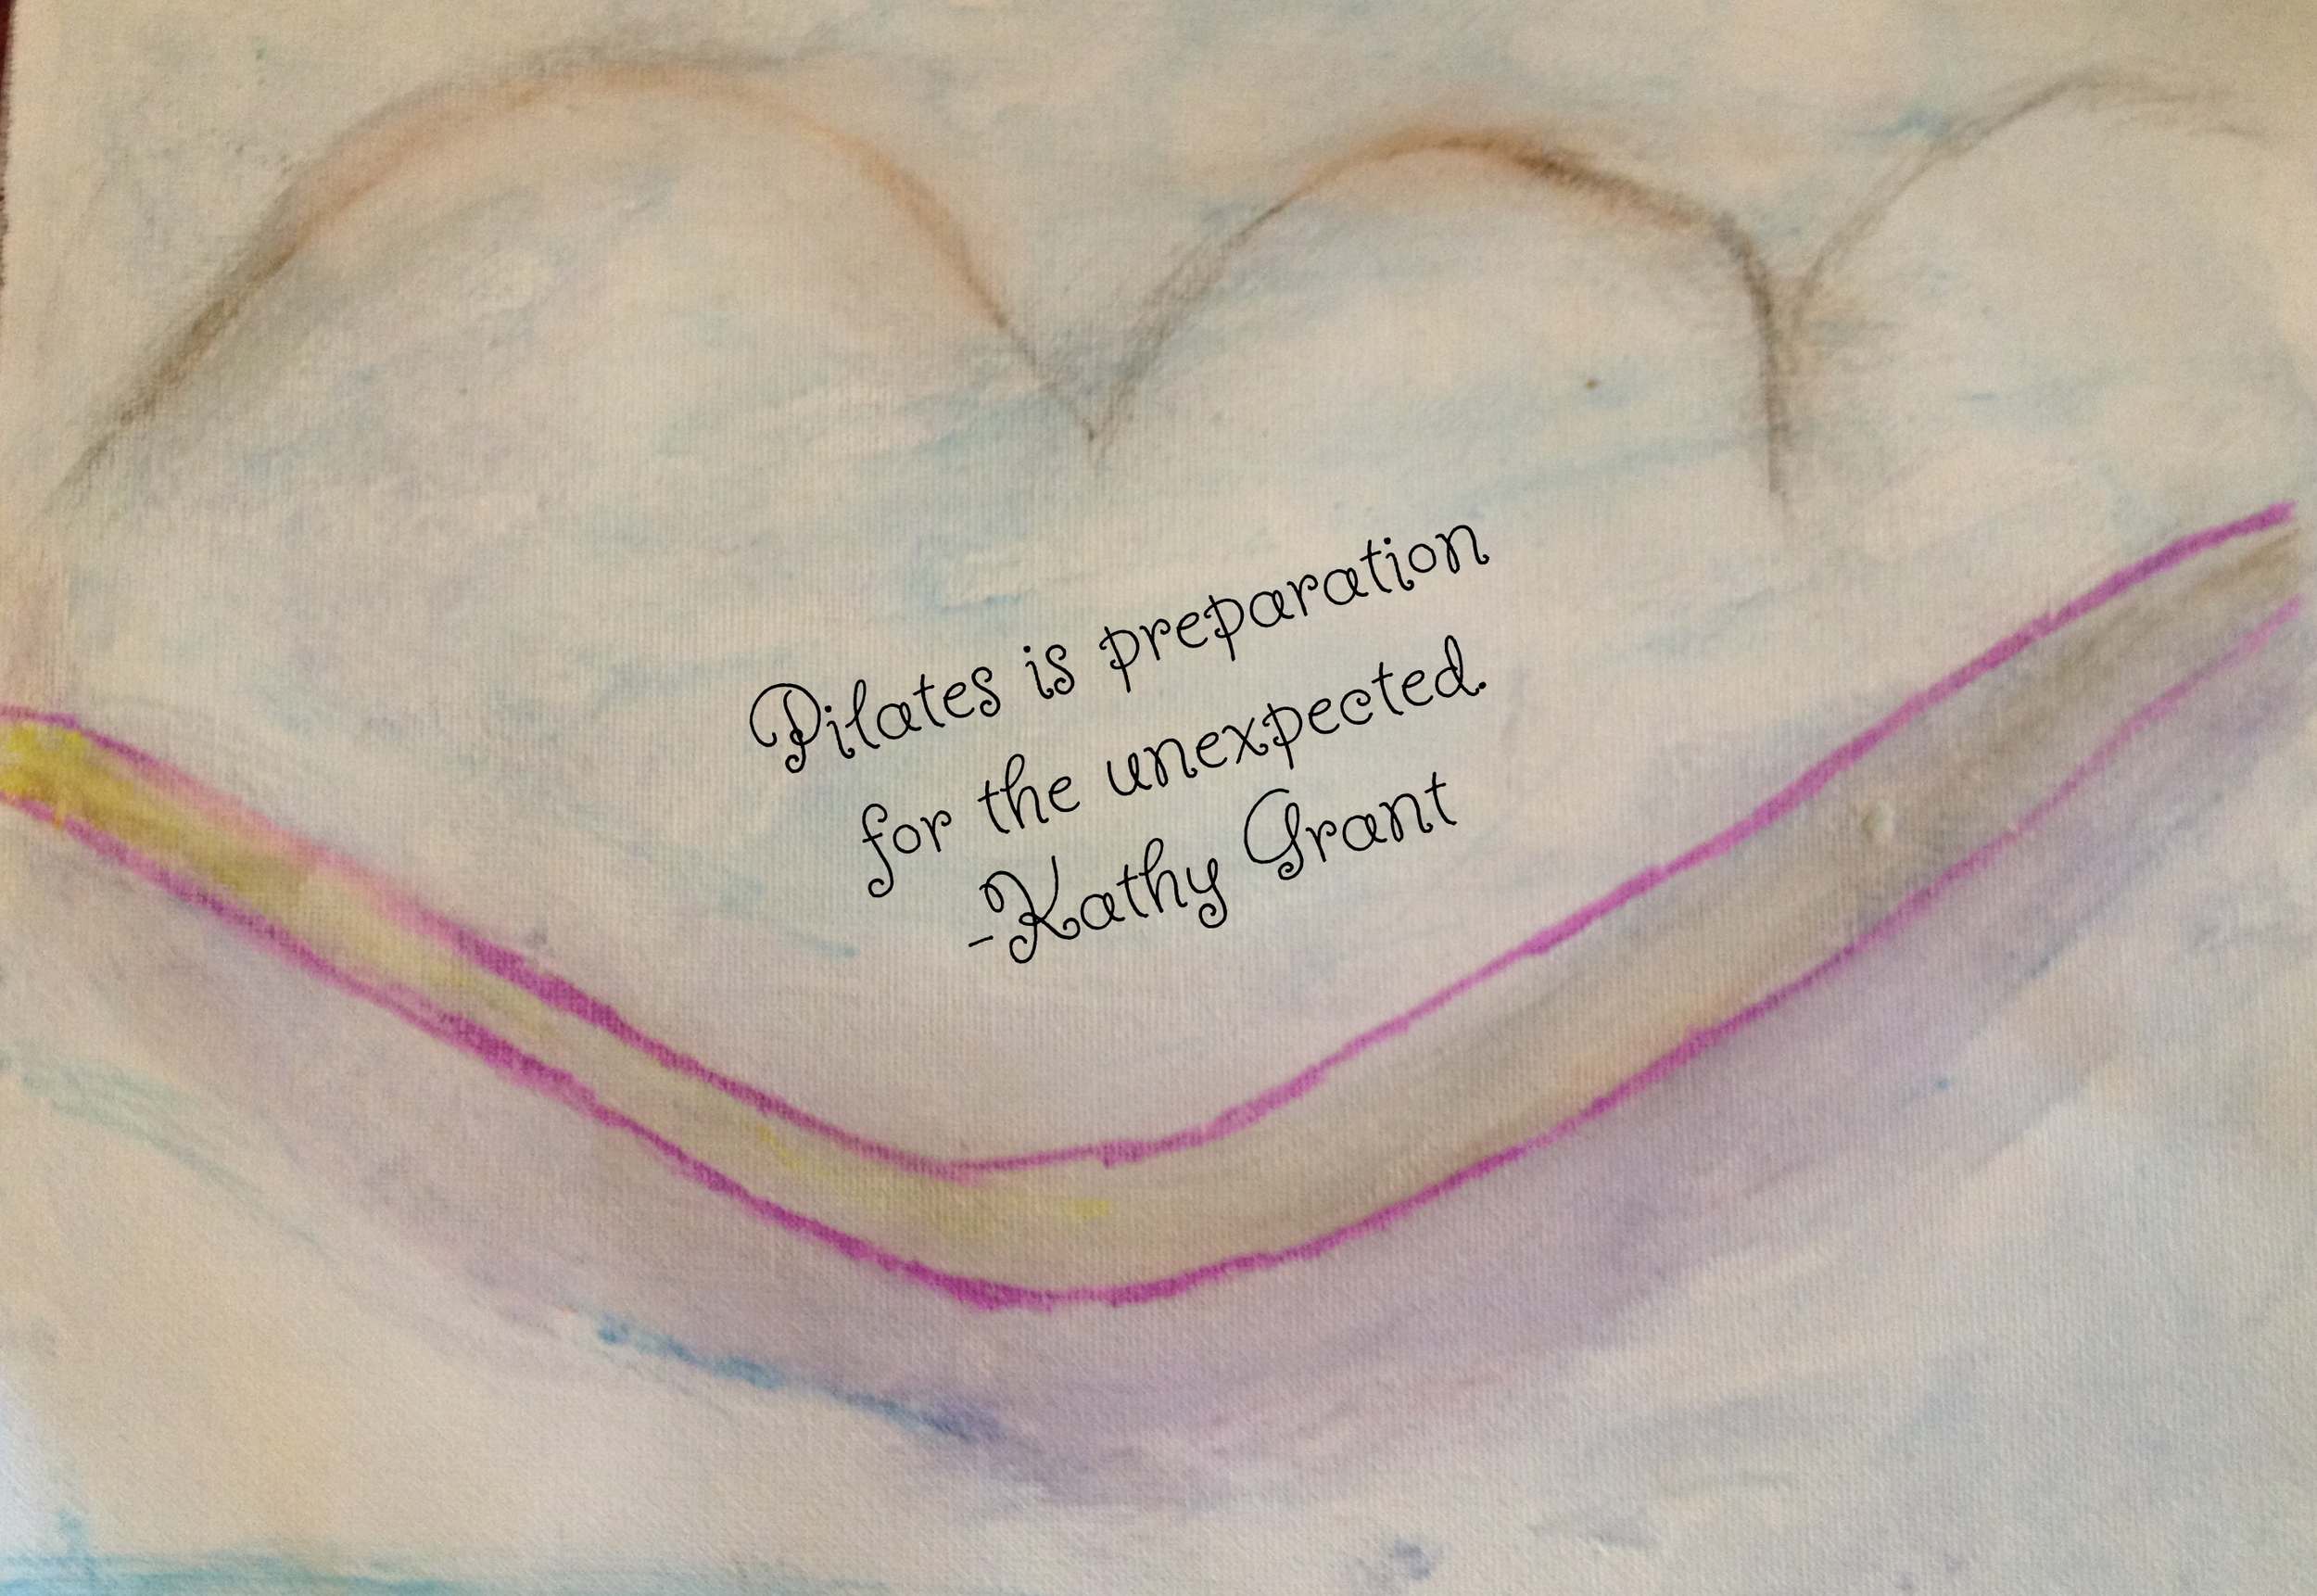 Pilates is preparation
for the unexpected.
-Kathy Grant